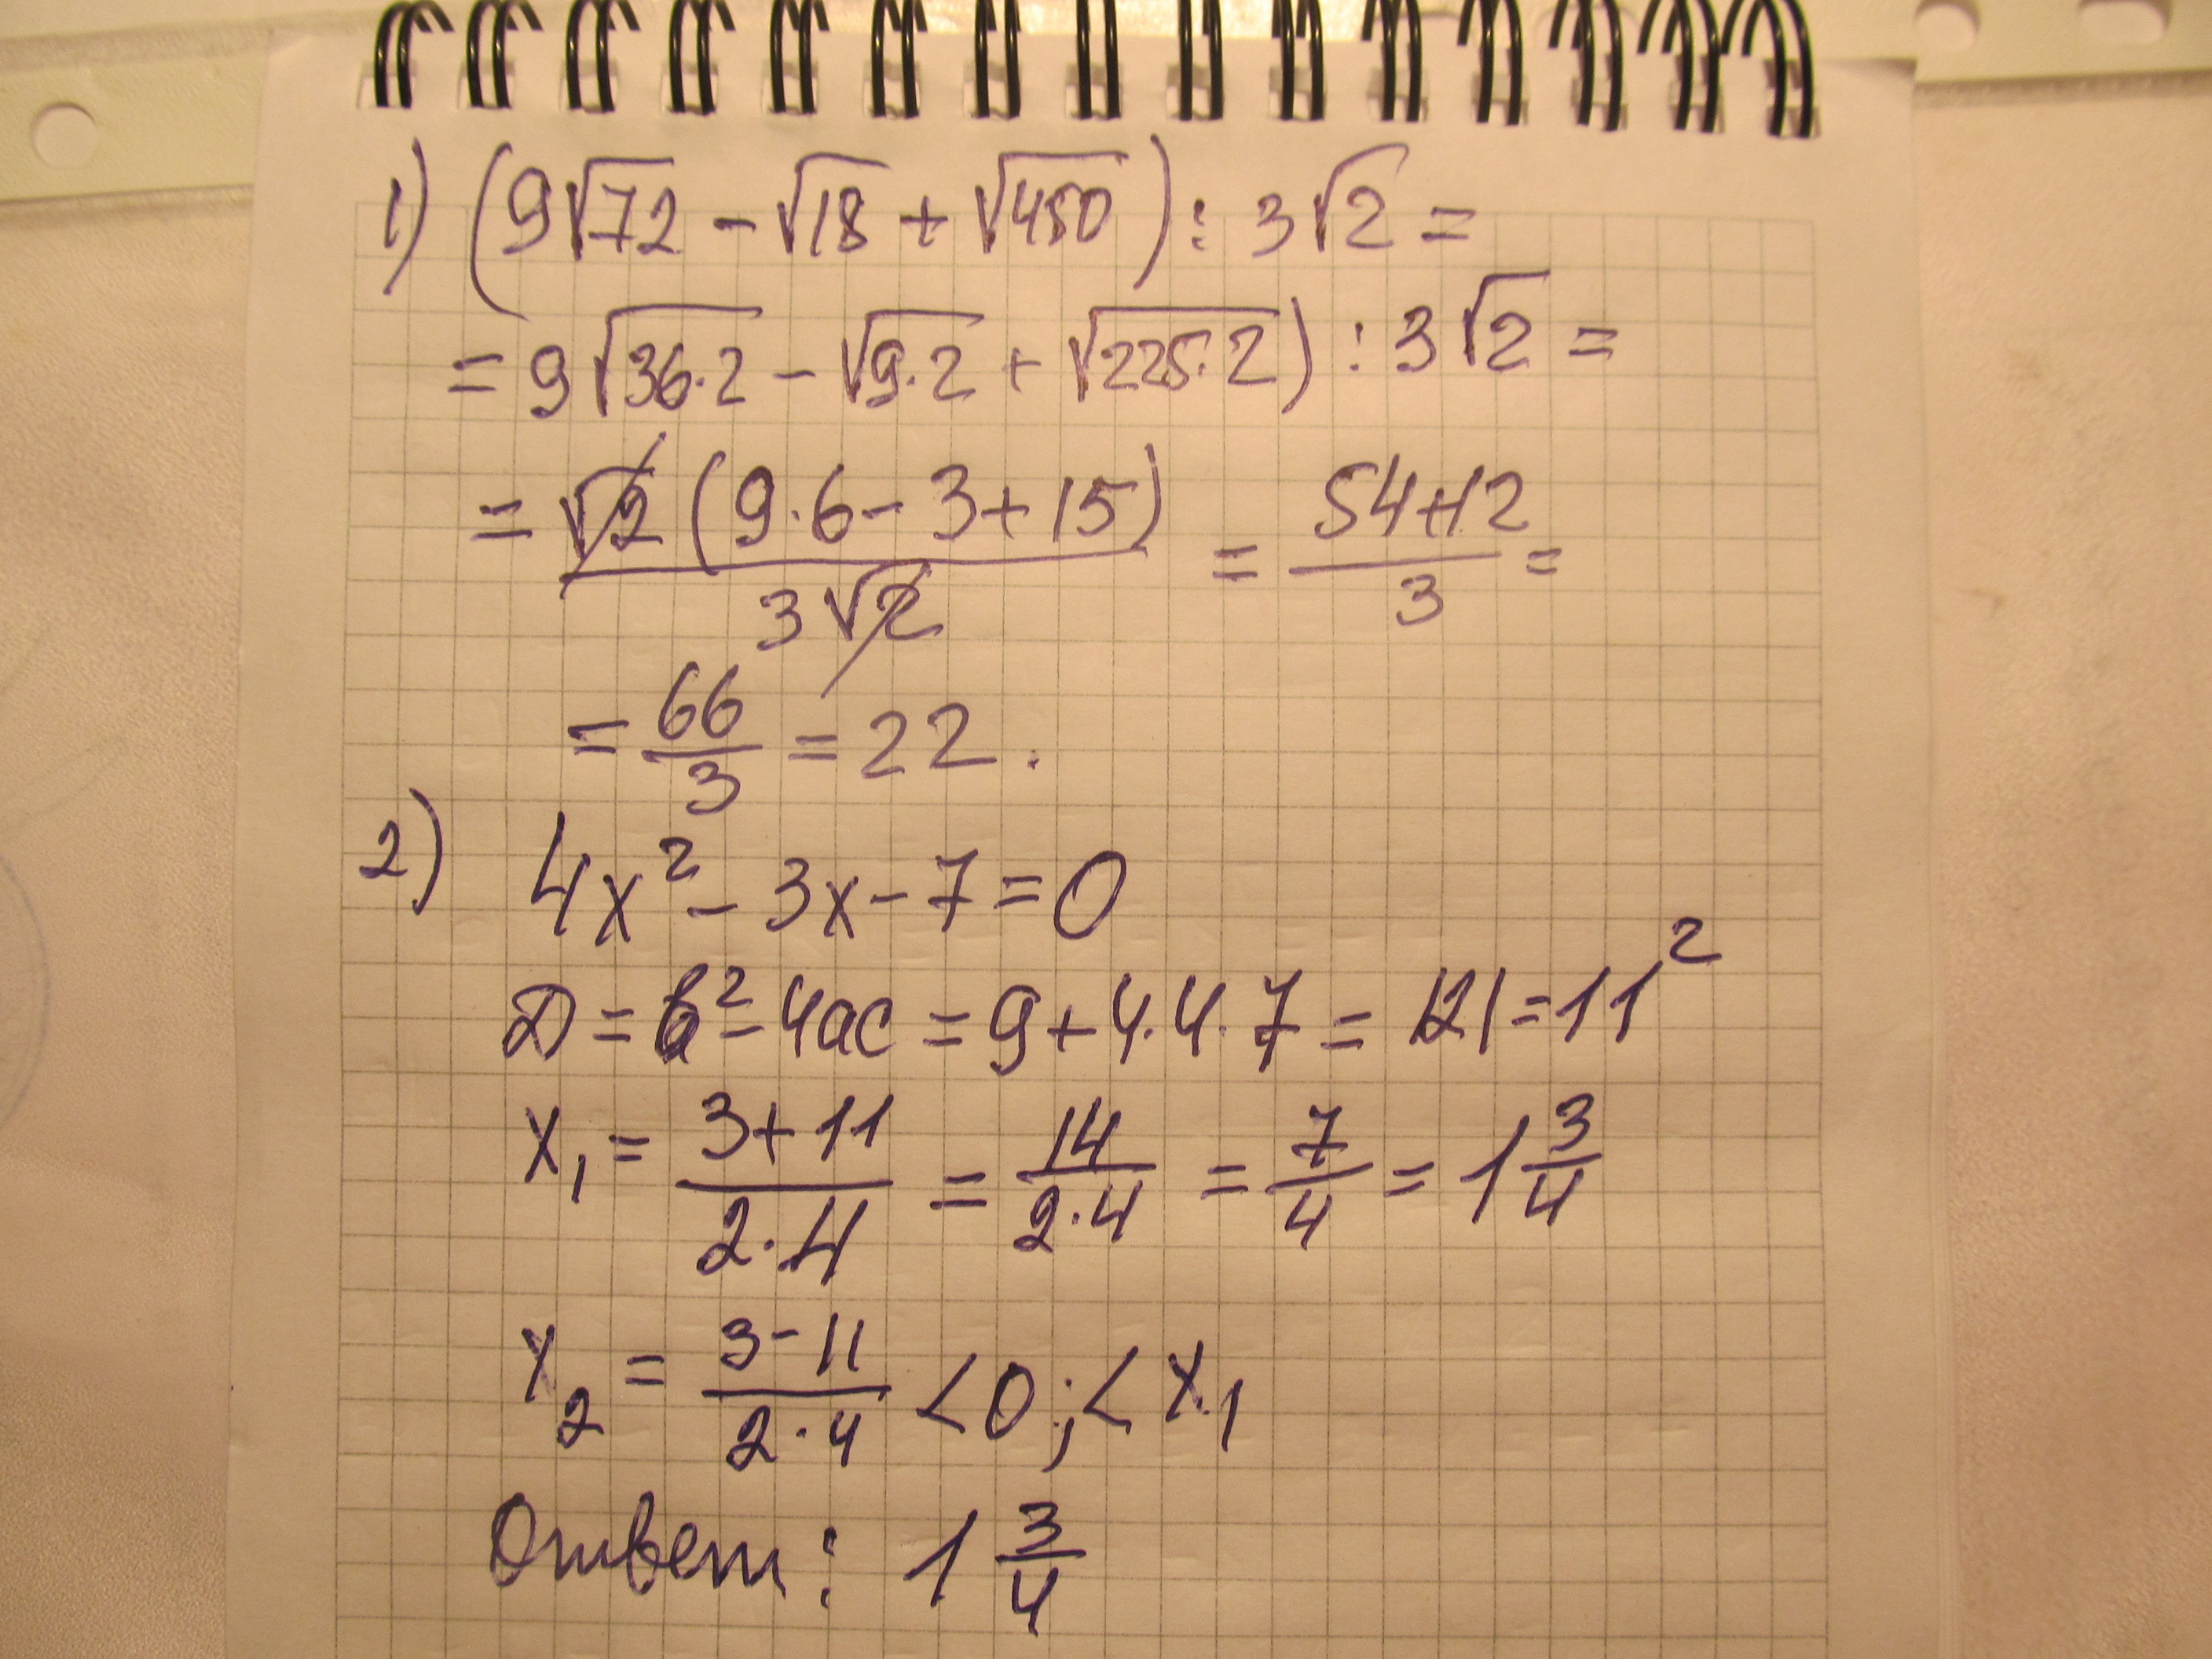 1) (9√72 - √18 + √450) : 3√2 =
= 9√36·2 - √9·2 + √225·2) : 3√2 =
= √2(9·6 - 3 + 15) / 3√2 = 54+12 / 3 =
= 66/3 = 22.
2) 4x² - 3x - 7 = 0
D = b² - 4ac = 9 + 4·4·7 = 121 = 11²
x₁ = 3+11 / 2·4 = 14 / 2·4 = 7/4 = 1 3/4
x₂ = 3-11 / 2·4 < 0; < x₁
Ответ: 1 3/4